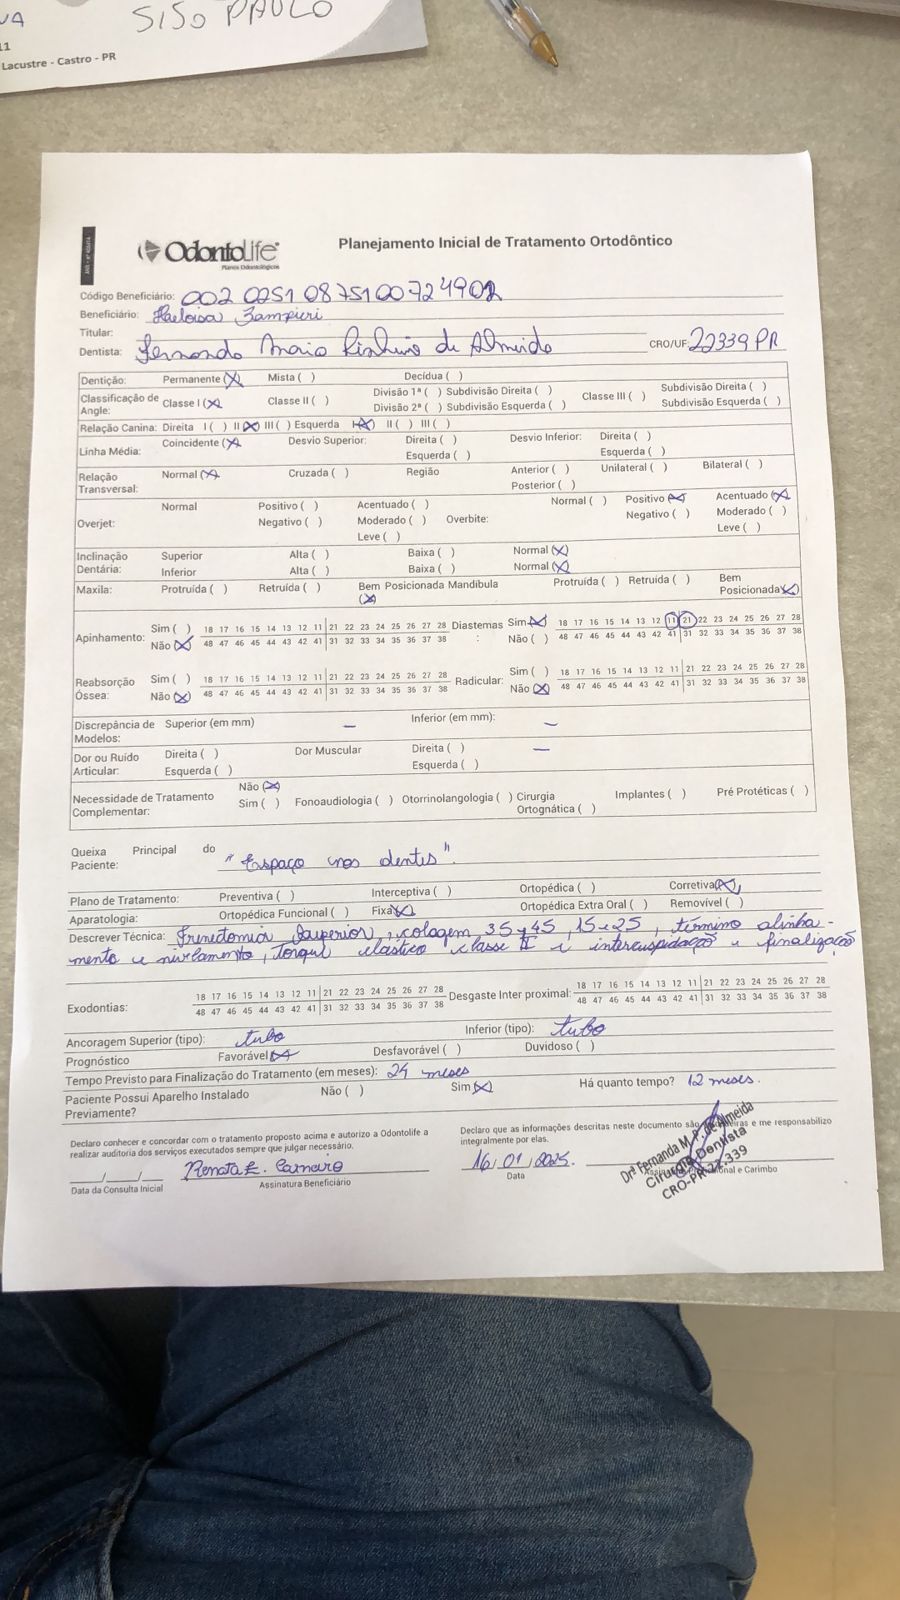 SISO PAULO
Lacustre - Castro - PR
OdontoLife
Planos Odontológicos
Planejamento Inicial de Tratamento Ortodôntico
Código Beneficiário: 002 0251 0875100724902
Beneficiário: Heloisa Zampieri
Titular:
Dentista: Fernanda Maia Pinheiro de Almeida CRO/UF: 22339 PR
Dentição: Permanente (X) Mista ( ) Decídua ( )
Classificação de Angle: Classe I (X) Classe II ( ) Divisão 1ª ( ) Subdivisão Direita ( ) Classe III ( ) Subdivisão Direita ( )
Divisão 2ª ( ) Subdivisão Esquerda ( ) Subdivisão Esquerda ( )
Relação Canina: Direita I ( ) II (X) III ( ) Esquerda I (X) II ( ) III ( )
Linha Média: Coincidente (X) Desvio Superior: Direita ( ) Desvio Inferior: Direita ( )
Esquerda ( ) Esquerda ( )
Relação Transversal: Normal (X) Cruzada ( ) Região Anterior ( ) Unilateral ( ) Bilateral ( )
Posterior ( )
Overjet: Normal Positivo ( ) Acentuado ( ) Overbite: Normal ( ) Positivo (X) Acentuado (X)
Negativo ( ) Moderado ( ) Negativo ( ) Moderado ( )
Leve ( ) Leve ( )
Inclinação Dentária: Superior Alta ( ) Baixa ( ) Normal (X)
Inferior Alta ( ) Baixa ( ) Normal (X)
Maxila: Protruída ( ) Retruída ( ) Bem Posicionada (X) Mandibula Protruída ( ) Retruída ( ) Bem Posicionada (X)
Apinhamento: Sim ( ) 18 17 16 15 14 13 12 11 21 22 23 24 25 26 27 28 Diastemas : Sim (X) 18 17 16 15 14 13 12 11 21 22 23 24 25 26 27 28
Não (X) 48 47 46 45 44 43 42 41 31 32 33 34 35 36 37 38 Não ( ) 48 47 46 45 44 43 42 41 31 32 33 34 35 36 37 38
Reabsorção Óssea: Sim ( ) 18 17 16 15 14 13 12 11 21 22 23 24 25 26 27 28 Radicular: Sim ( ) 18 17 16 15 14 13 12 11 21 22 23 24 25 26 27 28
Não (X) 48 47 46 45 44 43 42 41 31 32 33 34 35 36 37 38 Não (X) 48 47 46 45 44 43 42 41 31 32 33 34 35 36 37 38
Discrepância de Modelos: Superior (em mm) - Inferior (em mm): -
Dor ou Ruído Articular: Direita ( ) Dor Muscular Direita ( ) -
Esquerda ( ) Esquerda ( )
Necessidade de Tratamento Complementar: Não (X)
Sim ( ) Fonoaudiologia ( ) Otorrinolangologia ( ) Cirurgia Ortognática ( ) Implantes ( ) Pré Protéticas ( )
Queixa Principal do Paciente: "Espaço nos dentes".
Plano de Tratamento: Preventiva ( ) Interceptiva ( ) Ortopédica ( ) Corretiva (X)
Aparatologia: Ortopédica Funcional ( ) Fixa (X) Ortopédica Extra Oral ( ) Removível ( )
Descrever Técnica: Frenectomia Superior, colagem 35 y 45, 15 e 25, término alinha-
mento e nivelamento, torque elástico classe II e intercuspidação e finalização
Exodontias: 18 17 16 15 14 13 12 11 21 22 23 24 25 26 27 28 Desgaste Inter proximal: 18 17 16 15 14 13 12 11 21 22 23 24 25 26 27 28
48 47 46 45 44 43 42 41 31 32 33 34 35 36 37 38 48 47 46 45 44 43 42 41 31 32 33 34 35 36 37 38
Ancoragem Superior (tipo): tubo Inferior (tipo): tubo
Prognóstico Favorável (X) Desfavorável ( ) Duvidoso ( )
Tempo Previsto para Finalização do Tratamento (em meses): 24 meses
Paciente Possui Aparelho Instalado Previamente? Não ( ) Sim (X) Há quanto tempo? 12 meses.
Declaro conhecer e concordar com o tratamento proposto acima e autorizo a Odontolife a
realizar auditoria dos serviços executados sempre que julgar necessário.
Declaro que as informações descritas neste documento são e me responsabilizo
integralmente por elas.
__/__/__ Renata E. Carneiro 16/01/2025.
Data da Consulta Inicial Assinatura Beneficiário Data Carimbo
Drª Fernanda M. P. de Almeida
Cirurgiã Dentista
CRO-PR 22.339